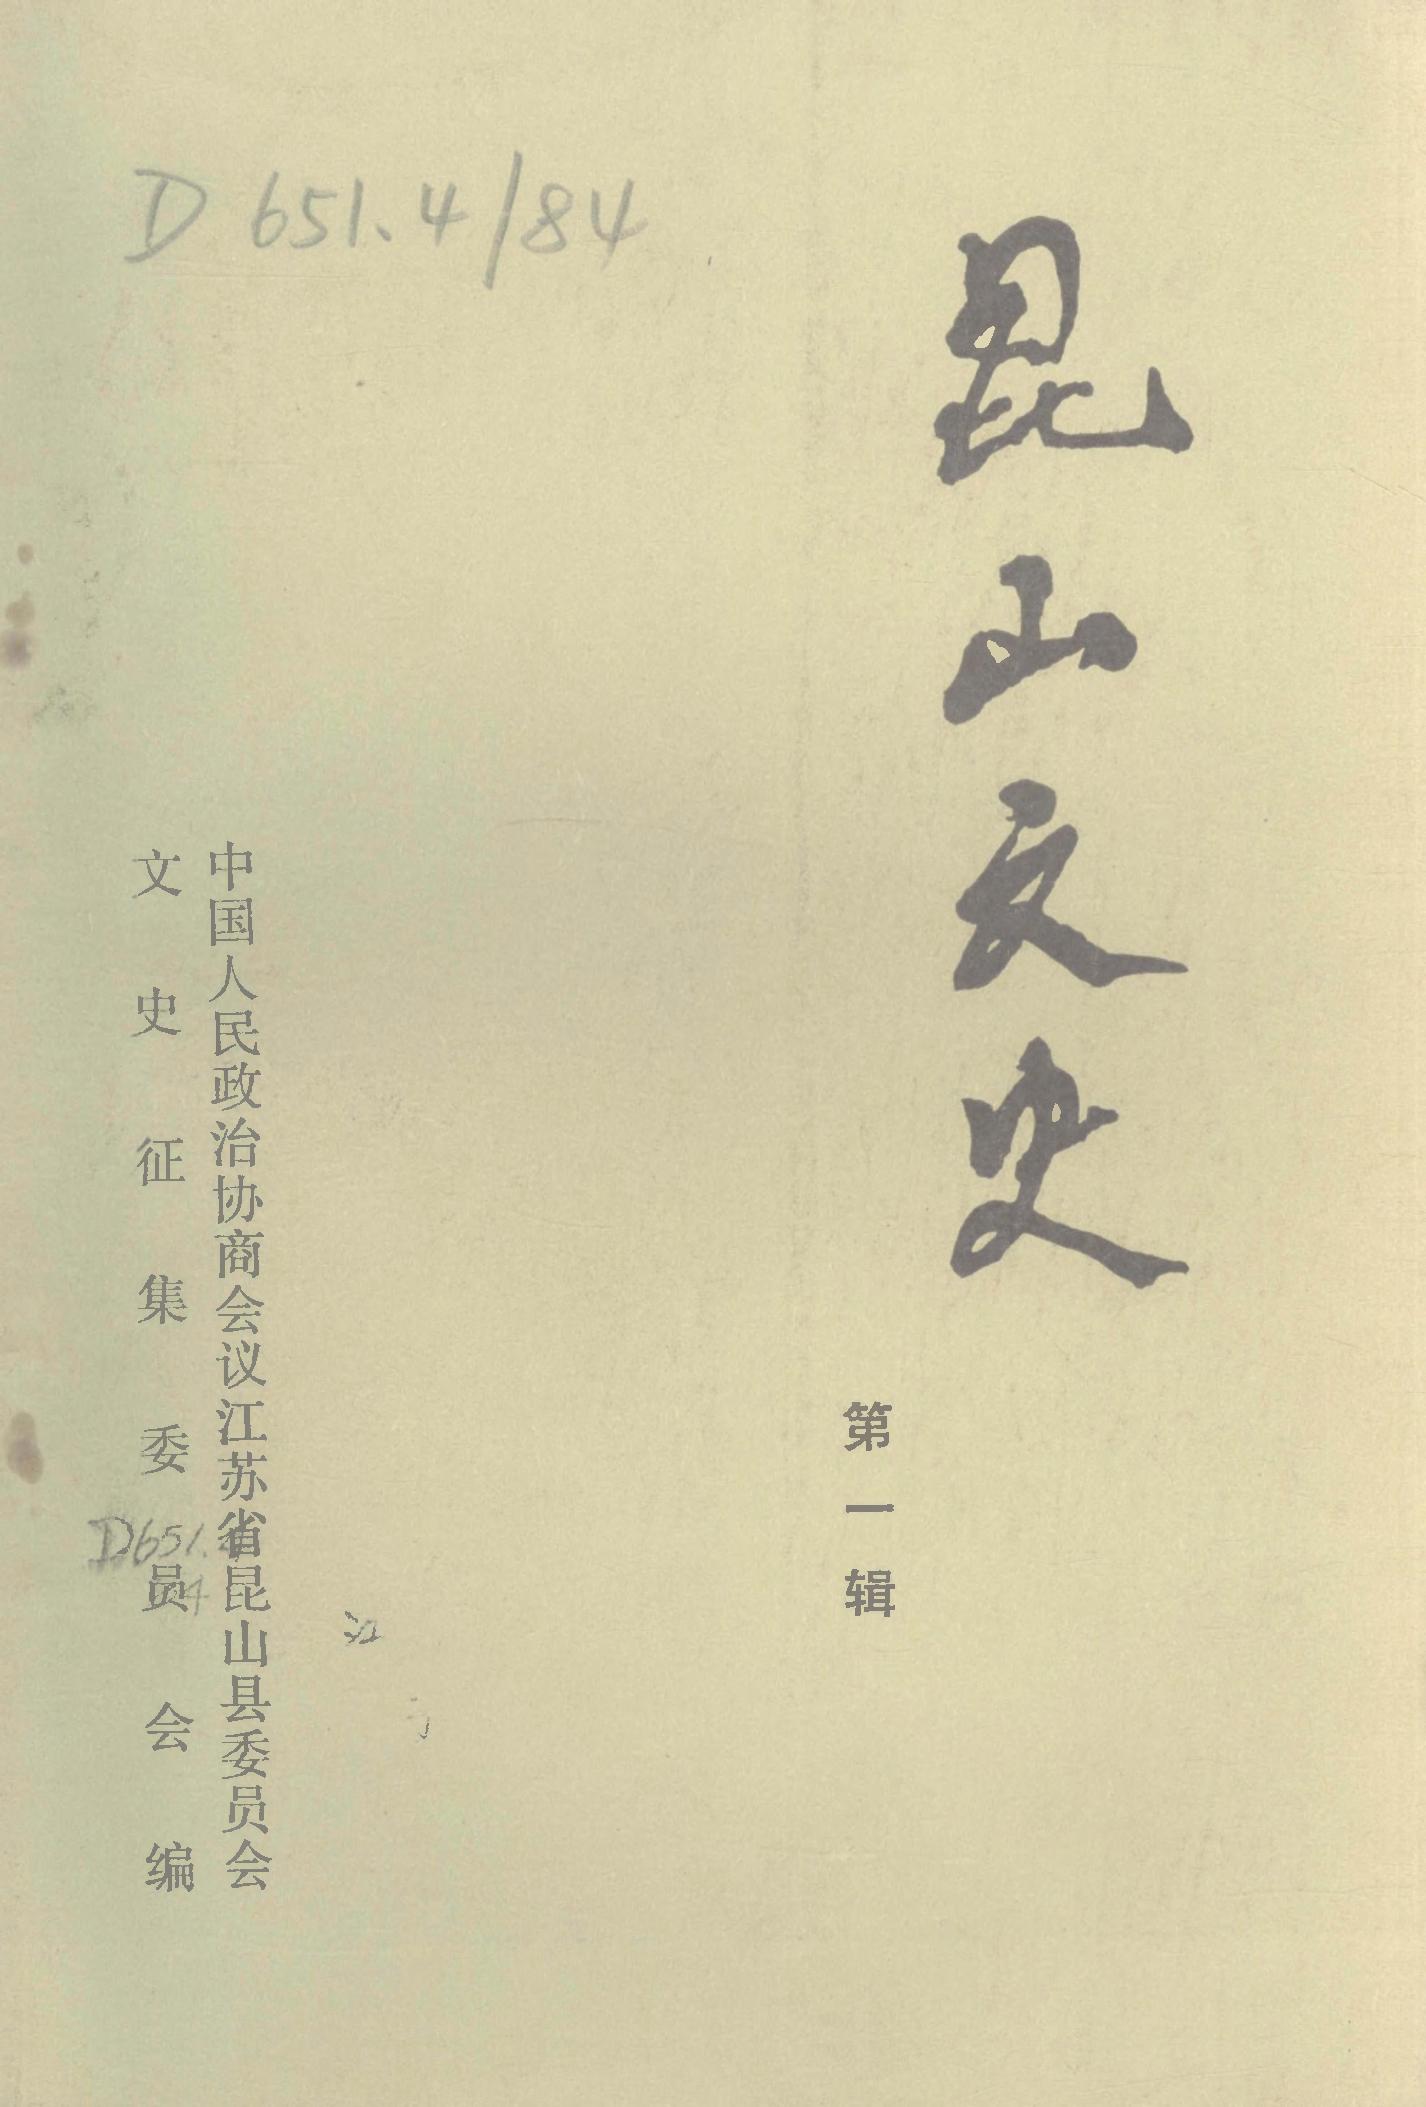 D 651.4/84
昆山文史
第一辑
中国人民政治协商会议江苏省昆山县委员会
文史征集委员会编
D651.